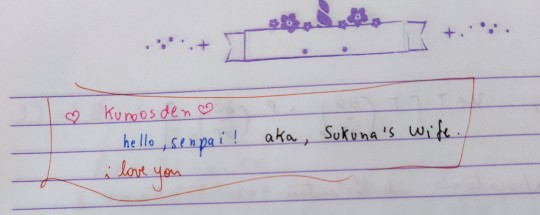 ♡ Kuroosden ♡
hello, senpai! aka, Sukuna's wife.
i love you